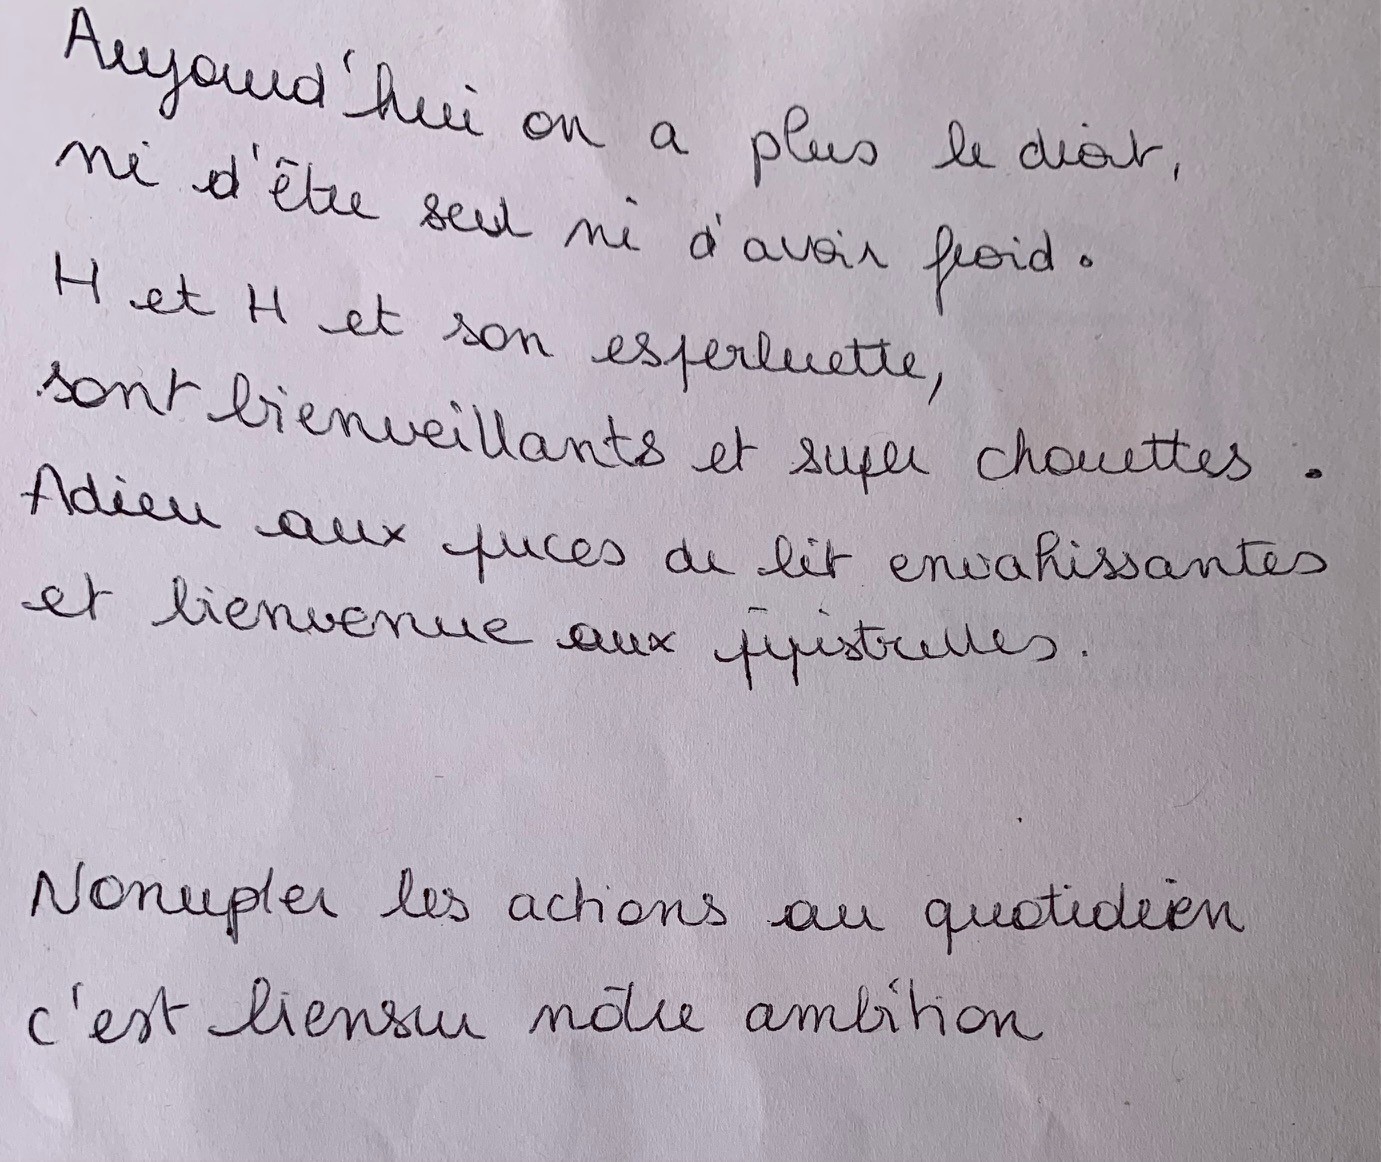 Aujourd'hui on a plus le droit,
ni d'être seul ni d'avoir froid.
H et H et son esperluette,
sont bienveillants et super chouettes.
Adieu aux puces de lit envahissantes
et bienvenue aux pipistrelles.
Nonupler les actions au quotidien
c'est biensur nôtre ambition